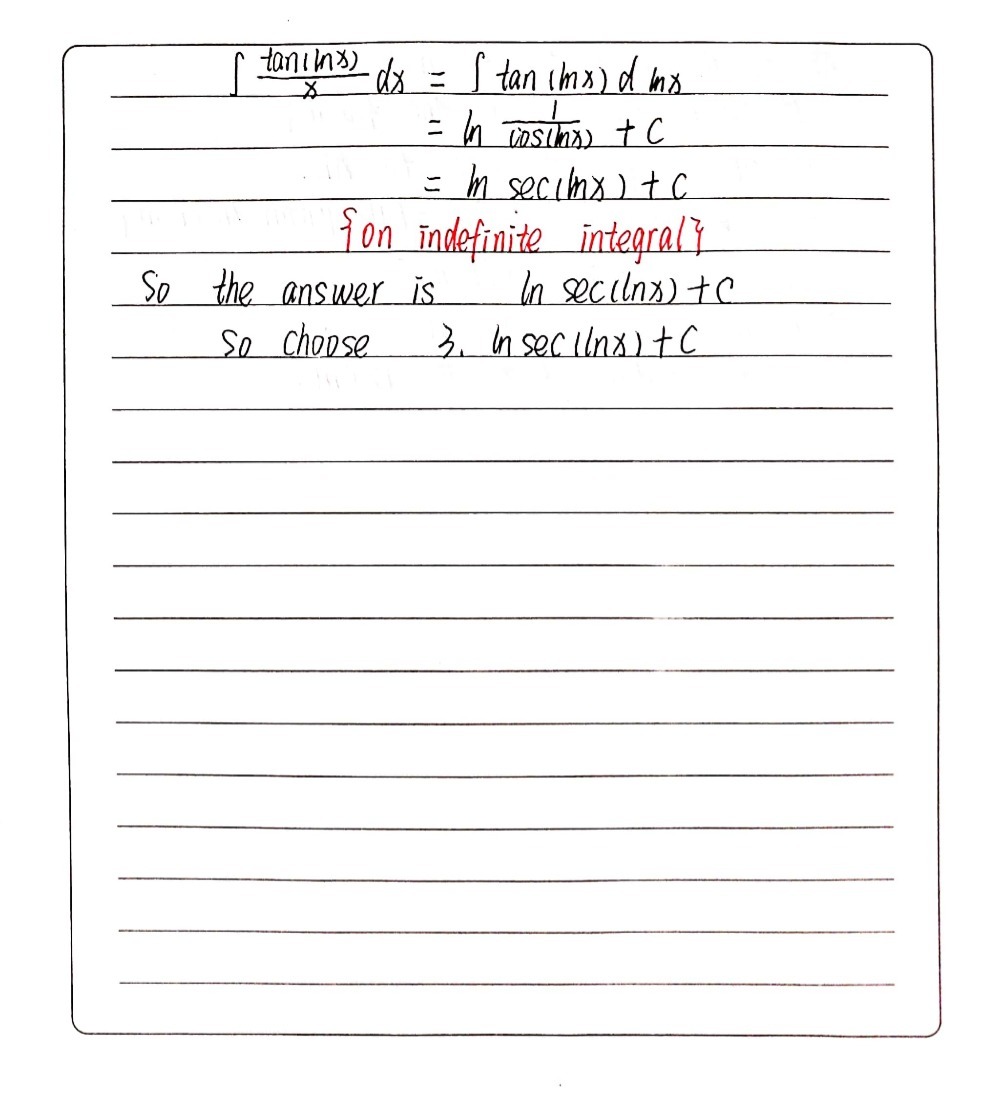 ∫ tan(lnx)/x dx = ∫ tan (lnx) d lnx
= ln 1/cos(lnx) + C
= ln sec(lnx) + C
{on indefinite integral}
So the answer is ln sec(lnx) + C
So choose 3. ln sec(lnx) + C